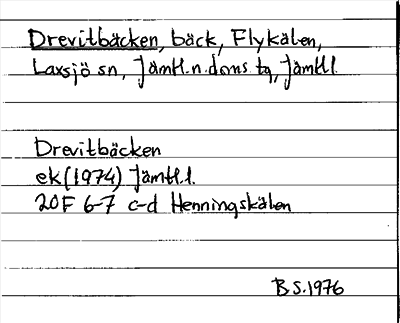 Drevitbäcken, bäck, Flykälen,
Laxsjö sn, Jämtl.n.doms tg, Jämtl.l.
Drevitbäcken
ek (1974) Jämtl.l.
20F 6-7 c-d Henningskälen
B S. 1976